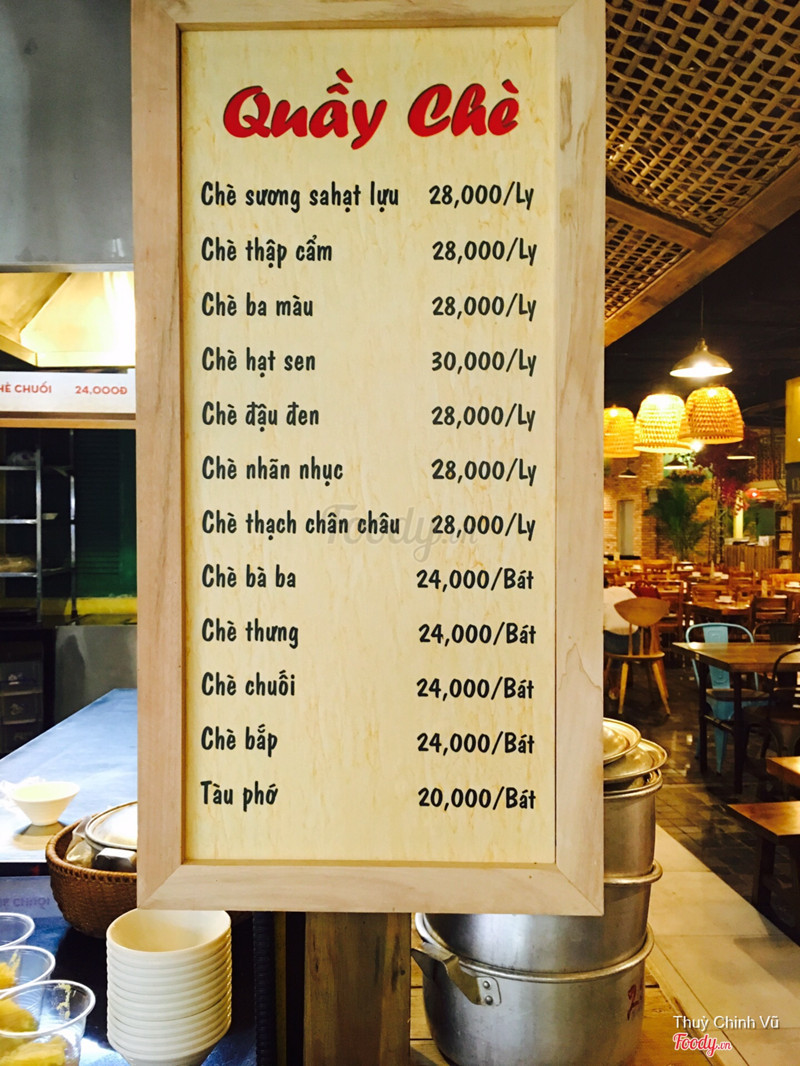 Quầy Chè
Chè sương sahạt lựu 28,000/Ly
Chè thập cẩm 28,000/Ly
Chè ba màu 28,000/Ly
Chè hạt sen 30,000/Ly
Chè đậu đen 28,000/Ly
Chè nhãn nhục 28,000/Ly
Chè thạch chân châu 28,000/Ly
Chè bà ba 24,000/Bát
Chè thưng 24,000/Bát
Chè chuối 24,000/Bát
Chè bắp 24,000/Bát
Tàu phớ 20,000/Bát
HÈ CHUỐI 24,000Đ
Foody.vn
Thuỳ Chinh Vũ
Foody.vn